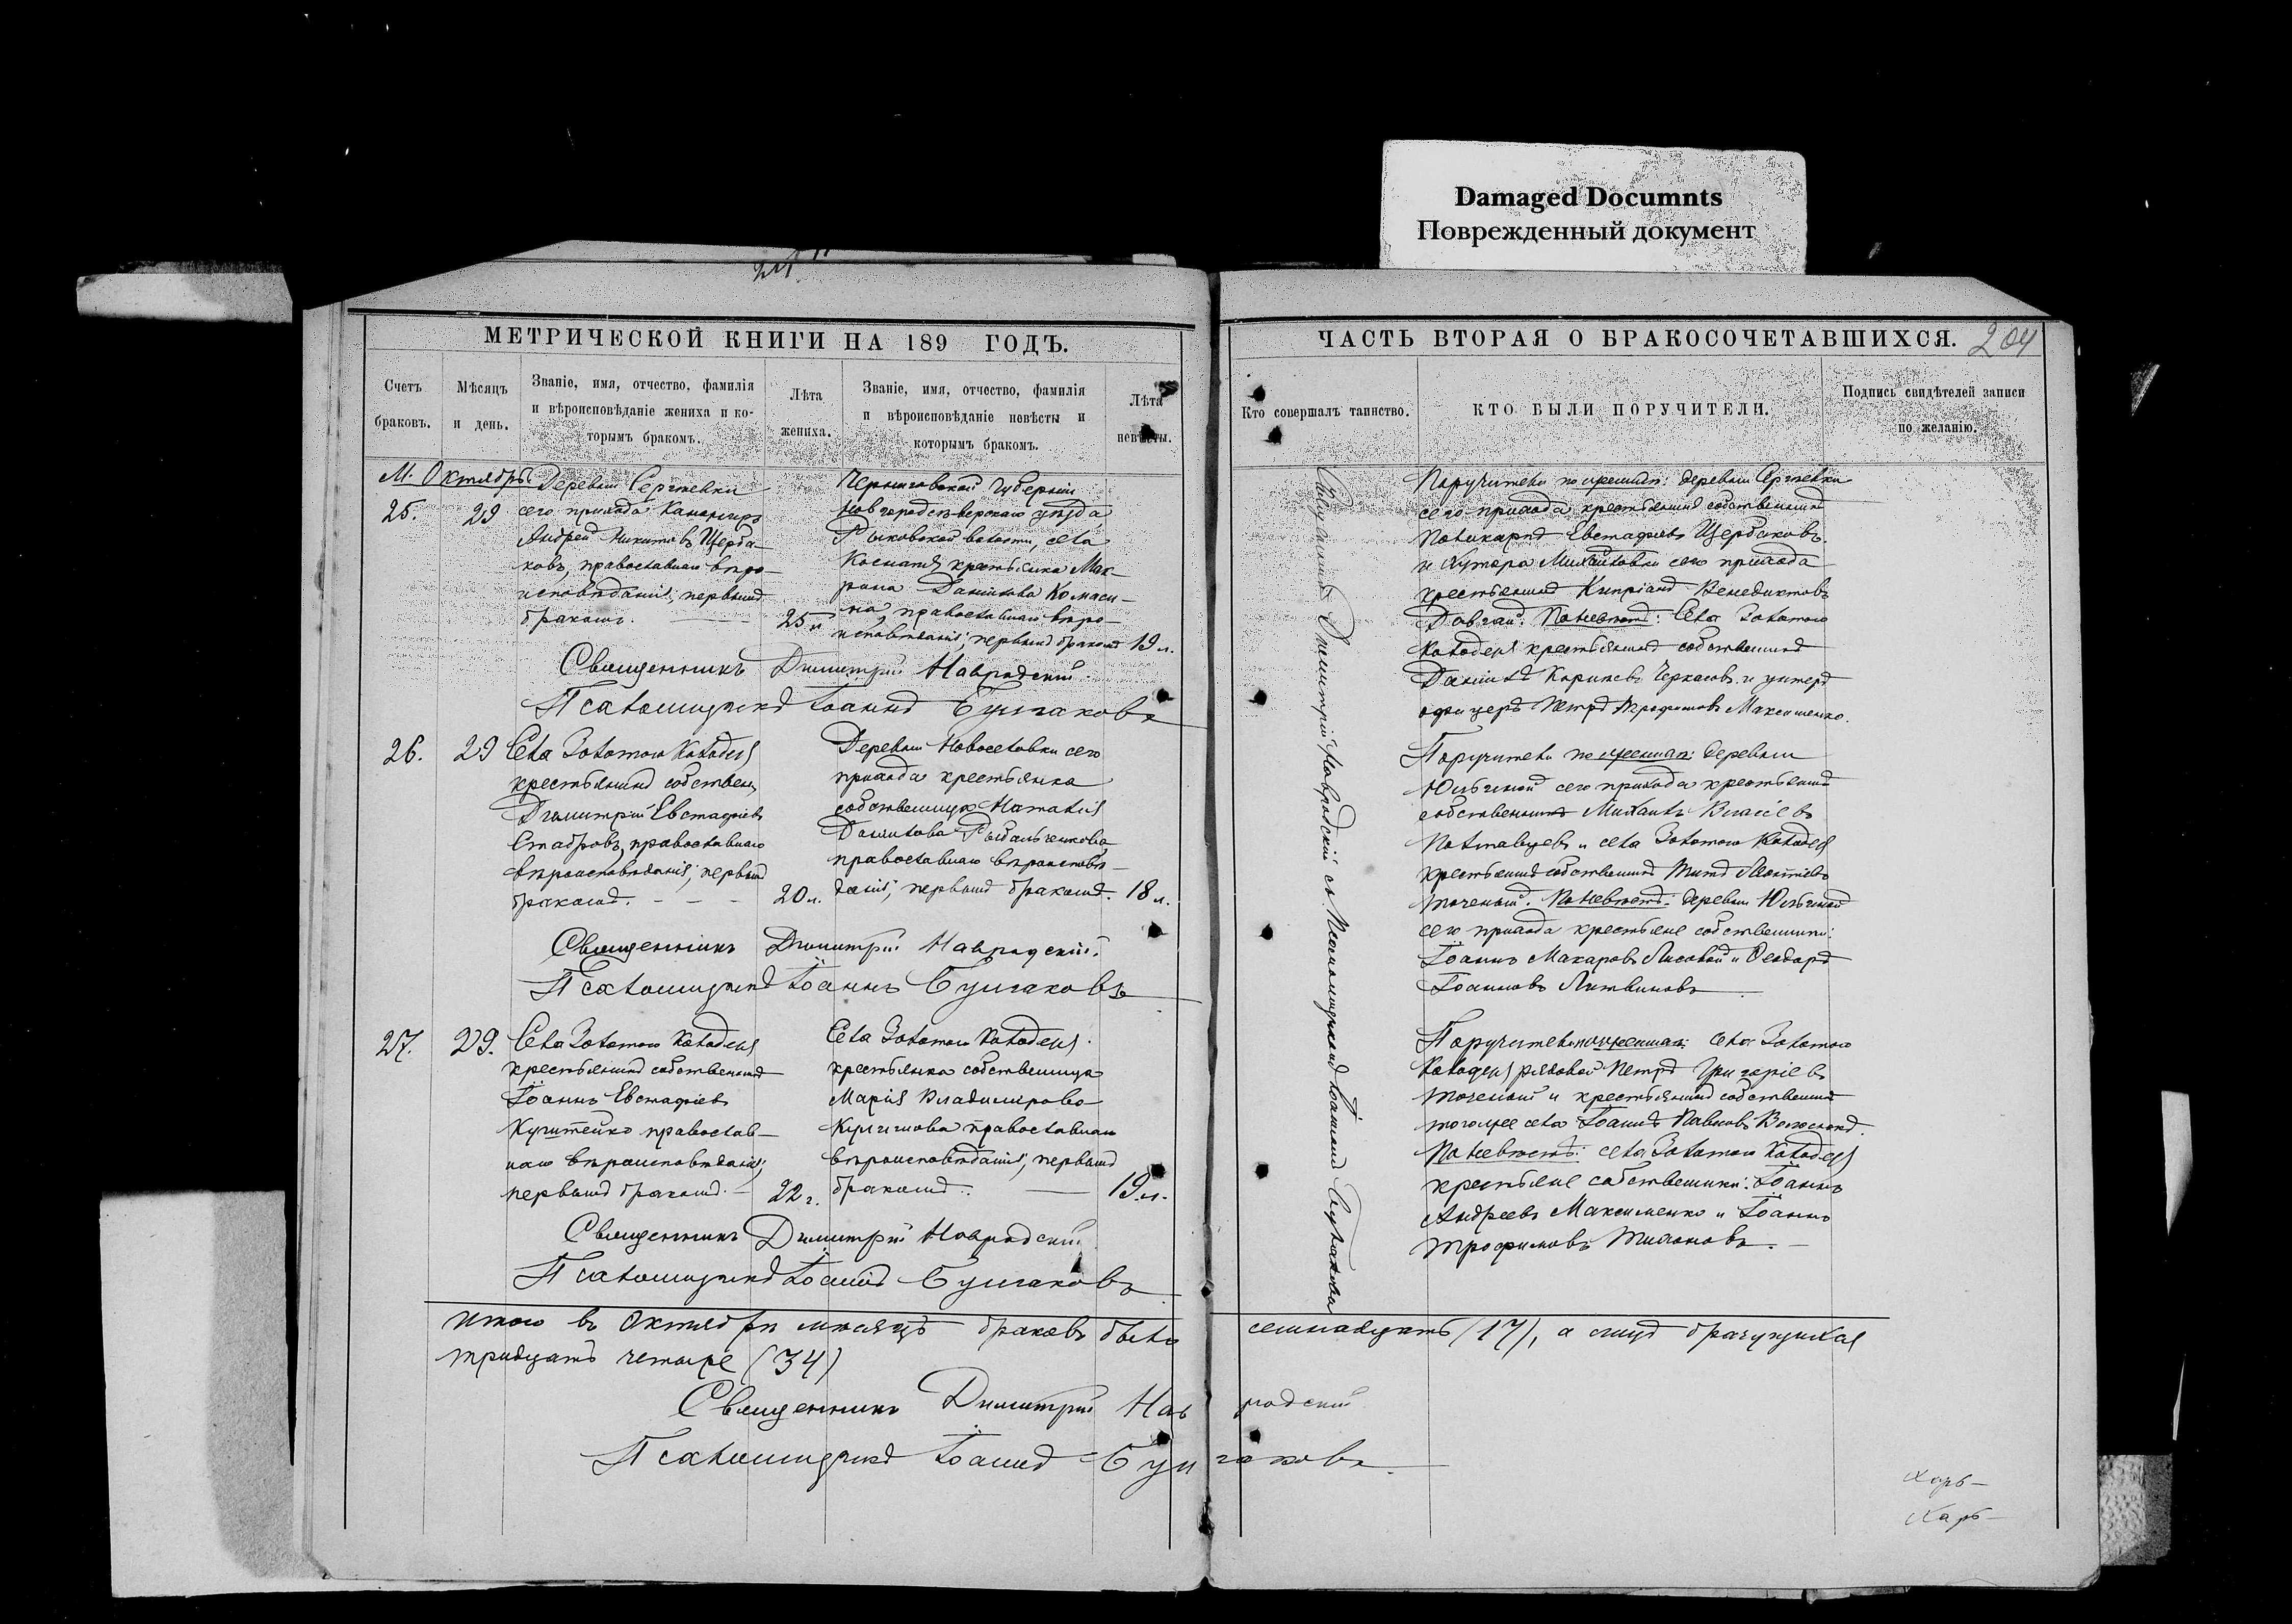 Damaged Documnts
Поврежденный документ
МЕТРИЧЕСКОЙ КНИГИ НА 189 ГОДЪ.
Счетъ браковъ.
Мѣсяцъ и день.
Званіе, имя, отчество, фамилія
и вѣроисповѣданіе жениха и ко-
торымъ бракомъ.
Лѣта
жениха.
Званіе, имя, отчество, фамилія
и вѣроисповѣданіе невѣсты и
которымъ бракомъ.
Лѣта
невѣсты.
М. Октябрь
25.
29
Деревни Сергѣевки
сего прихода Канониръ
Андрей Никитовъ Щерба-
ковъ, православнаго вѣро-
исповѣданія, первымъ
бракомъ.
25 л.
Черниговской Губерніи
Новгородсѣверскаго уѣзда,
Рыковской волости, села
крестьянка Мак-
рина Данилова
православнаго вѣро-
исповѣданія, первымъ бракомъ
19 л.
Священникъ Димитрій Навродскій.
Псаломщикъ Іоаннъ Булгаковъ
26.
29
Села Золотого Колодезя
крестьянинъ собствен.
Димитрій Евстафіевъ
православнаго
вѣроисповѣданія, первымъ
бракомъ.
20 л.
Деревни Новоселовки сего
прихода крестьянка
собственница Наталія
Данилова Рыбальченкова,
православнаго вѣроисповѣ-
данія, первымъ бракомъ.
18 л.
Священникъ Димитрій Навродскій.
Псаломщикъ Іоаннъ Булгаковъ
27.
29.
Села Золотого Колодезя
крестьянинъ собственникъ
Іоаннъ Евстафіевъ
православ-
наго вѣроисповѣданія,
первымъ бракомъ.
22 г.
Села Золотого Колодезя
крестьянка собственница
Марія Владимірова
православнаго
вѣроисповѣданія, первымъ
бракомъ.
19 л.
Священникъ Димитрій Навродскій
Псаломщикъ Іоаннъ Булгаковъ
Итого въ Октябрѣ мѣсяцѣ браковъ было семнадцать (17), а лицъ брачущихся
тридцать четыре (34)
Священникъ Димитрій Навродскій
Псаломщикъ Іоаннъ Булгаковъ.
ЧАСТЬ ВТОРАЯ О БРАКОСОЧЕТАВШИХСЯ.
204
Кто совершалъ таинство.
КТО БЫЛИ ПОРУЧИТЕЛИ.
Подпись свидѣтелей записи
по желанію.
Священникъ Димитрій Навродскій съ Псаломщикомъ Іоанномъ Булгаковымъ
Поручители по женихѣ: деревни Сергѣевки
сего прихода крестьянинъ собственникъ
Поликарпъ Евстафіевъ Щербаковъ.
и хутора Михайловки сего прихода
крестьянинъ Кипріанъ Венедиктовъ
Довгай. По невѣстѣ: Села Золотого
Колодезя крестьянинъ собственникъ
Даніилъ Черкасовъ и унтеръ
офицеръ Петръ Трофимовъ Максименко.
Поручители по женихѣ: деревни
Юльиной сего прихода крестьянинъ
собственникъ Михаилъ Власіевъ
и села Золотого Колодезя
крестьянинъ собственникъ Титъ
Точеный. По невѣстѣ: деревни Юльиной
сего прихода крестьяне собственники:
Іоаннъ Макаровъ Лисовой и Ѳеодоръ
Іоанновъ Литвиновъ
Поручители по женихѣ: села Золотого
Колодезя рядовой Петръ Григоріевъ
Точеный и крестьянинъ собственникъ
тогоже села Іоаннъ Павловъ
По невѣстѣ: села Золотого Колодезя
крестьяне собственники: Іоаннъ
Андреевъ Максименко и Іоаннъ
Трофимовъ Тихоновъ.
Харь-
Харь-